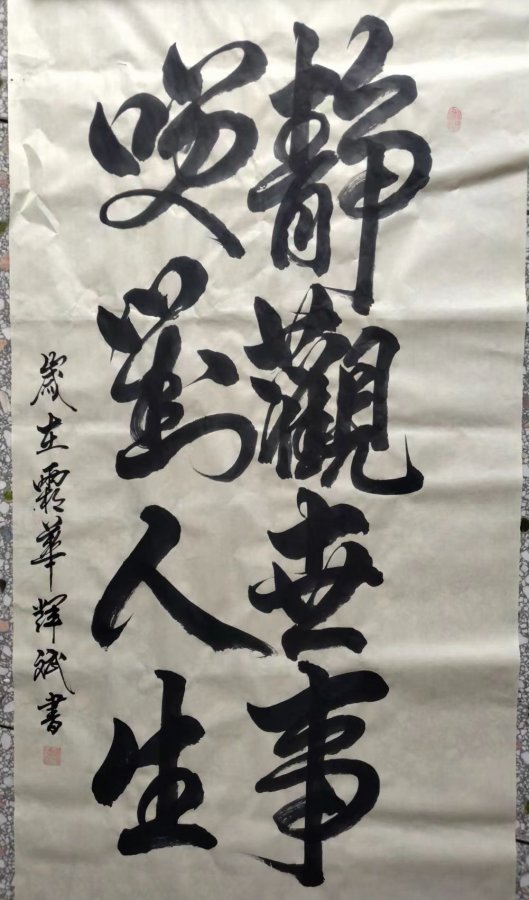 靜觀世事
咲對人生
歲在霜華輝斌書